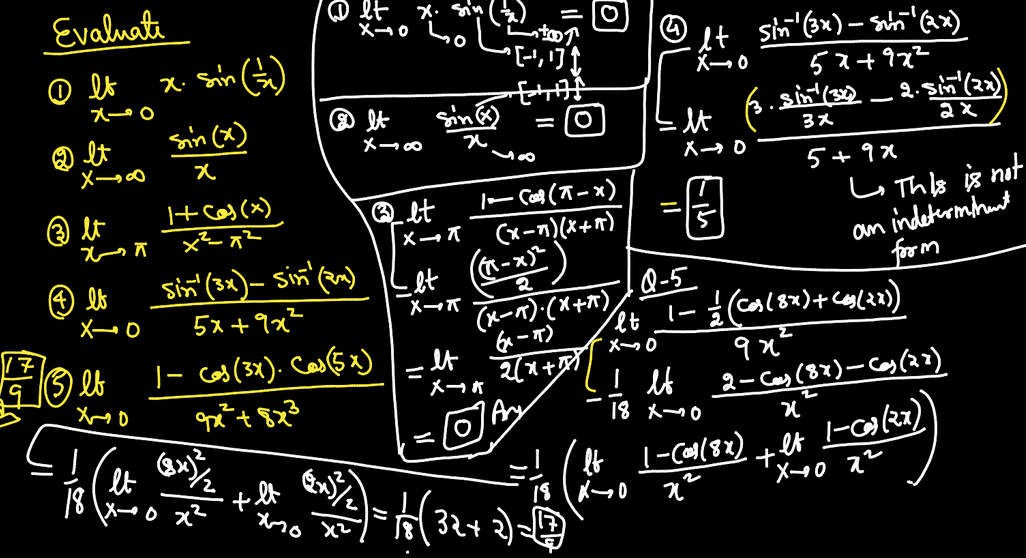 Evaluate
① lt x→0 x. sin(1/x)
② lt x→∞ sin(x)/x
③ lt x→π 1+cos(x)/x²-π²
④ lt x→0 sin⁻¹(3x)-sin⁻¹(2x)/5x+9x²
17/9 ⑤ lt x→0 1-cos(3x).cos(5x)/9x²+8x³
① lt x→0 x. sin(1/x) = 0
→0 →±∞
[-1,1]
[-1,1]
② lt x→∞ sin(x)/x = 0
→∞
③ lt x→π 1-cos(π-x)/(x-π)(x+π)
= lt x→π ((π-x)²/2)/(x-π).(x+π)
= lt x→π (x-π)/2(x+π)
= 0 Ans
④ lt x→0 sin⁻¹(3x)-sin⁻¹(2x)/5x+9x²
= lt x→0 (3.sin⁻¹(3x)/3x - 2.sin⁻¹(2x)/2x)/5+9x
↳ This is not
an indeterminant
form
= 1/5
Q-5
lt x→0 1-1/2(cos(8x)+cos(2x))/9x²
= 1/18 lt x→0 2-cos(8x)-cos(2x)/x²
= 1/18 (lt x→0 1-cos(8x)/x² + lt x→0 1-cos(2x)/x²)
= 1/18 (lt x→0 (8x)²/2/x² + lt x→0 (2x)²/2/x²) = 1/18 (32+2) = 17/9